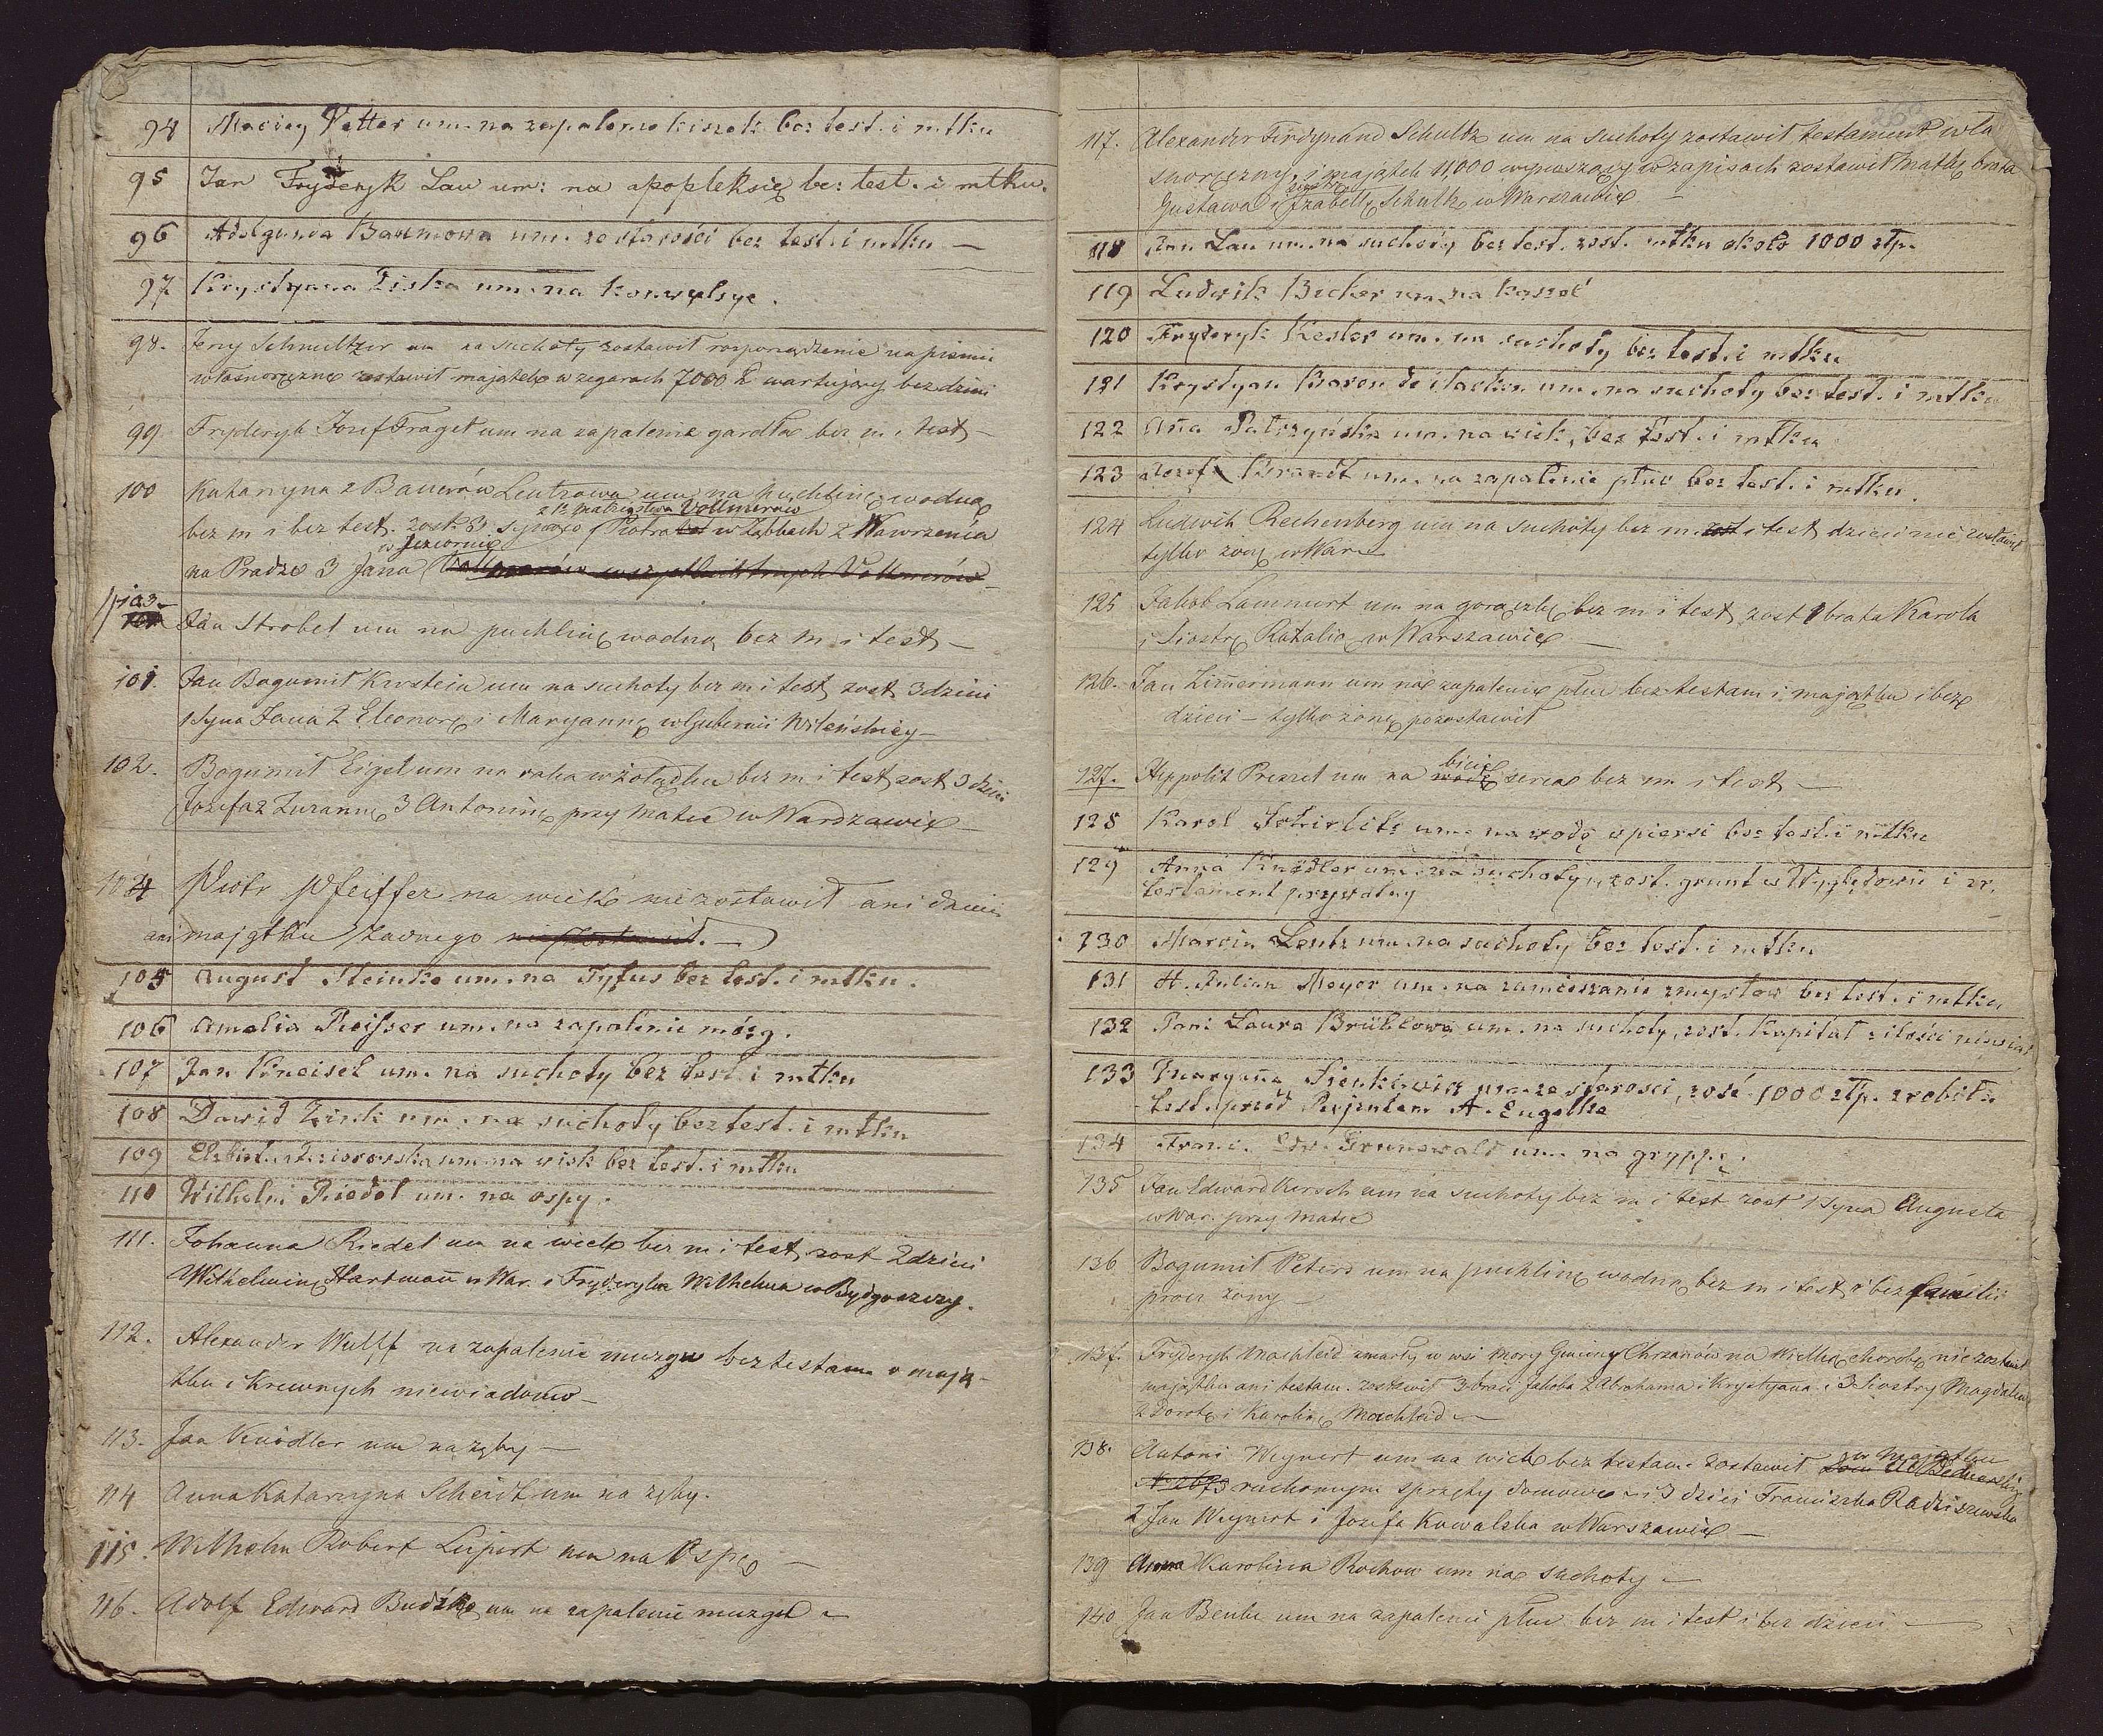 94 Maciey Vetter um. na zapalenie kiszek bez test. i mtku
95 Jan Fryderyk Lau um: na apopleksię be: test. i mtku.
96 Adelgunda Baumowa um. ze starości bez test. i mtku —
97 Krystyana Ziska um. na konwulsye.
98. Jerzy Schmeltzer um na suchoty zostawił rozporządzenie na pismie
własnoręczne zostawił majątek w zegarach 7000 Zł wartujący bez dzieci
99 Fryderyk Jozef Fraget um na zapalenie gardła bez m i test —
100 Katarzyna z Bauerów Lentzowa um na puchlinę wodną
z 1o małżeństwa Vollmerów
bez m i bez test. zost 3 synów Piotra w Ząbkach 2 Wawrzeńca
w Jeziornie
na Pradze 3 Jana
103 Jan Strobel um na puchlinę wodną bez m i test —
101. Jan Bogumił Kirstein um na suchoty bez m i test zost 3 dzieci
1 Syna Jana 2 Eleonorę i Maryannę w Gubernii Wileńskiey —
102. Bogumił Eigel um na raka w żołądku bez m i test zost 3 dzieci
Jozefa 2 Zuzannę 3 Antoninę przy Matce w Wardzawie —
104 Piotr Pfeiffer na wielk niezostawił ani dzieci
ani majątku żadnego
105 August Steinke um. na Tyfus bez test. i mtku.
106 Amelia Reisser um. na zapalenie mózg.
107 Jan Kneisel um. na suchoty bez test. i mtku
108 Dawid Zink um. na suchoty bez test. i mtku
109 Elzbieta um. na wiek bez test. i mtku
110 Wilhelm Riedel um. na ospy.
111. Johanna Riedel um na wiek bez m i test, zost 2 dzieci
Wilhelminę Hartmañ w War. i Fryderyka Wilhelma w Bydgoszczy.
112. Alexander Wulff na zapalenie muzgu bez testam o mają-
tku i krewnych niewiadomo —
113. Jan Knödler um na zęby —
114 Anna Katarzyna Scheidt um na zęby.
115. Wilhelm Robert Leipert um na Ospę —
116. Adolf Edward Budzko um na zapalenie muzgu —
117. Alexander Ferdynand Schultz um na suchoty zostawił testament wła
snoręczny, i majątek 11,000 wyrwszony w zapisach zostawił Matkę brata
siostrę
Gustawa i Izabellę Schultz w Warszawie —
118 Jan Lau um. na suchoty bez test. zost. mtku około 1000 złp.
119 Ludwik Becher um. na kaszel
120 Fryderyk Kesler um. na suchoty bez test. i mtku
121 Krystyan Baron de um. na suchoty bez test. i mtku
122 Aña Patrzyńska um. na wiek, bez test. i mtku
123 Jozef Brandt um. na zapalenie płuc bez test. i mtku.
124 Ludwik Rechenberg um na suchoty bez m. i test dzieci nie zostawił
tylko żonę w War.
125 Jakob Lammert um na gorączkę bez m i test zost 1 brata Karola
i Siostrę Natalię w Warszawie —
126. Jan Zimermann um na zapalenie płuc bez testam i majątku i bez
dzieci — tylko żonę pozostawił
127. Hippolit Preszel um na bicie serca bez m i test —
128 Karol um. na wodę w piersi bez test. i mtku
129 Anna Knödler um. na suchoty, zost. grunt w Wyględowie i zr.
testament prywatny
130 Marcin Lentz um. na suchoty bez test. i mtku
131 H. Julian Meyer um. na zamieszanie zmysłow bez test. i mtku
132 Pani Laura Brühlowa um. na suchoty, zost. Kapitał z ilości niewiad
133 Maryaña Sienkiewicz um. ze starości, zost. 1000 złp. zrobiła
test. przed Rejentem A. Engelke
134 Franc. Edw. Grunewald um. na gryppę.
135 Jan Edward Kirsch um na suchoty bez m i test zost 1 Syna Augusta
w War. przy Matce
136 Bogumił Peters um na puchlinę wodną bez m i test i bez familii
procz żony —
137. Fryderyk Machleid zmarły w wsi Mory Gminy Chrzanów na Wielką chorobę nie zostawił
majątku ani testam. zostawił 3 braci Jakoba 2 Abrahama i Krystyana i 3 Siostry Magdalenę
2 Dorotę i Karolinę Machleid —
138. Antoni Weynert um na wiek bez testam. zostawił w Majątku
ruchomym sprzęty domowe i 3 dzieci Franciszka Radziszewska
2 Jan Weynert i Jozefa Kowalska w Warszawie —
139 Anna Karolina Rochow um na suchoty —
140 Jan Benke um na zapalenie płuc bez m i test i bez dzieci —